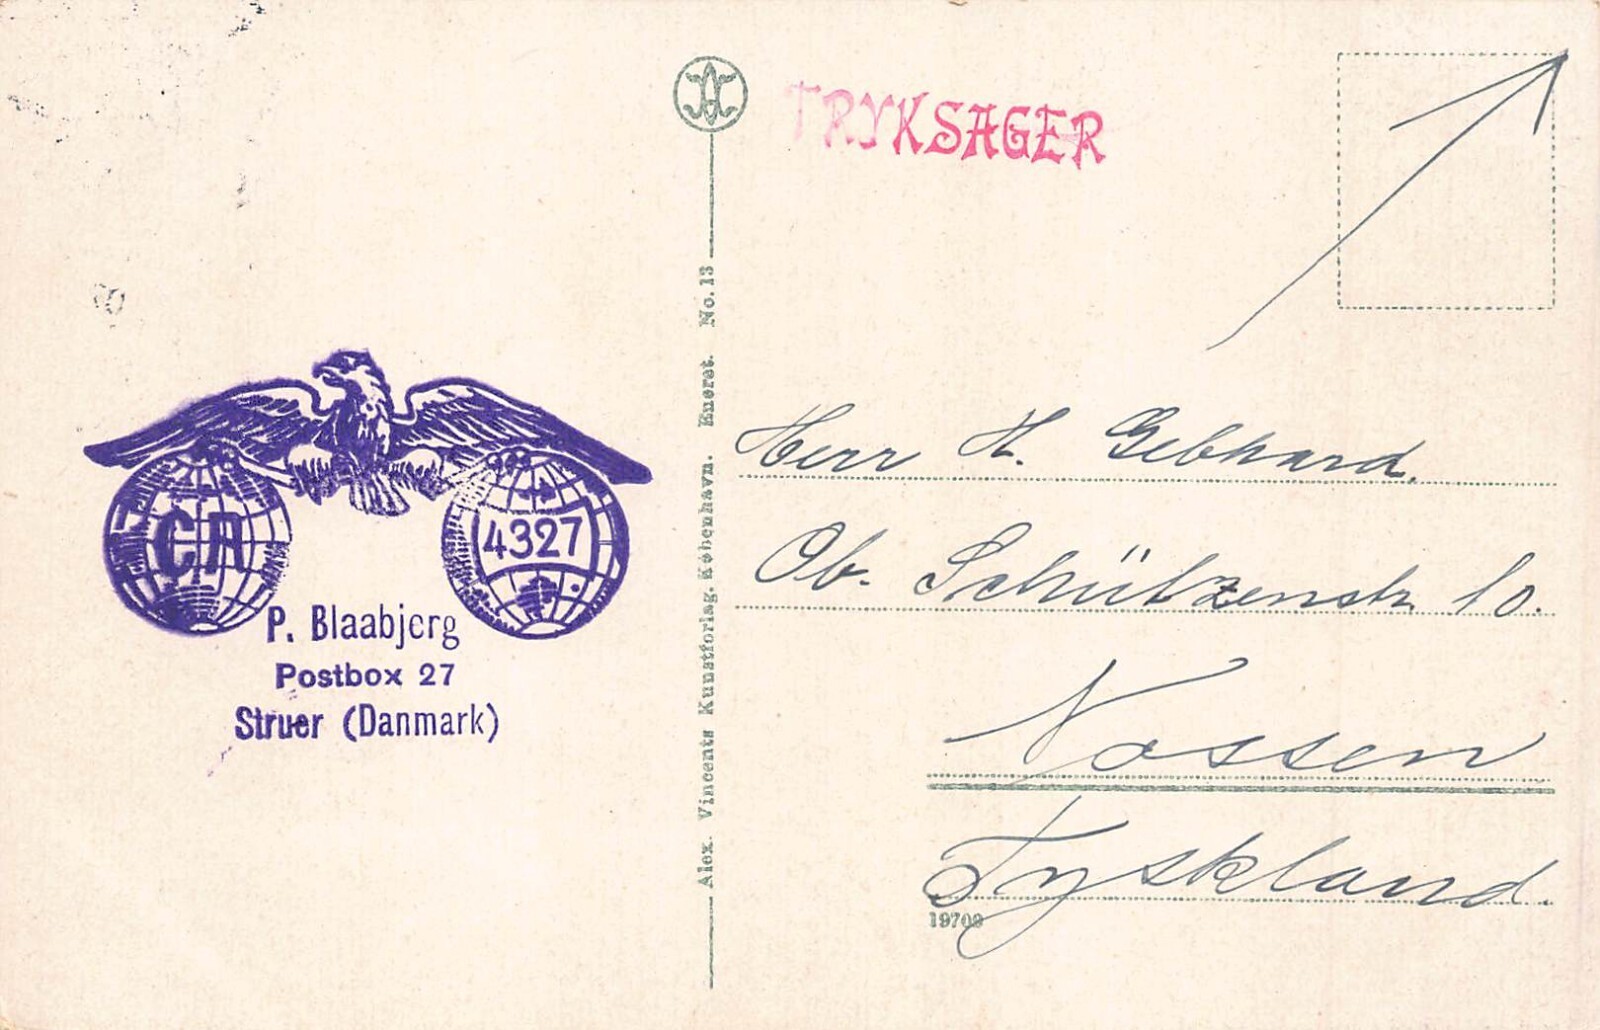 TRYKSAGER
CA
4327
P. Blaabjerg
Postbox 27
Struer (Danmark)
Alex. Vincents Kunstforlag. København. Eneret. No. 13
Herr H. Gebhard.
Ob. Schützenstr. 10.
Nossen
Tyskland.
19708